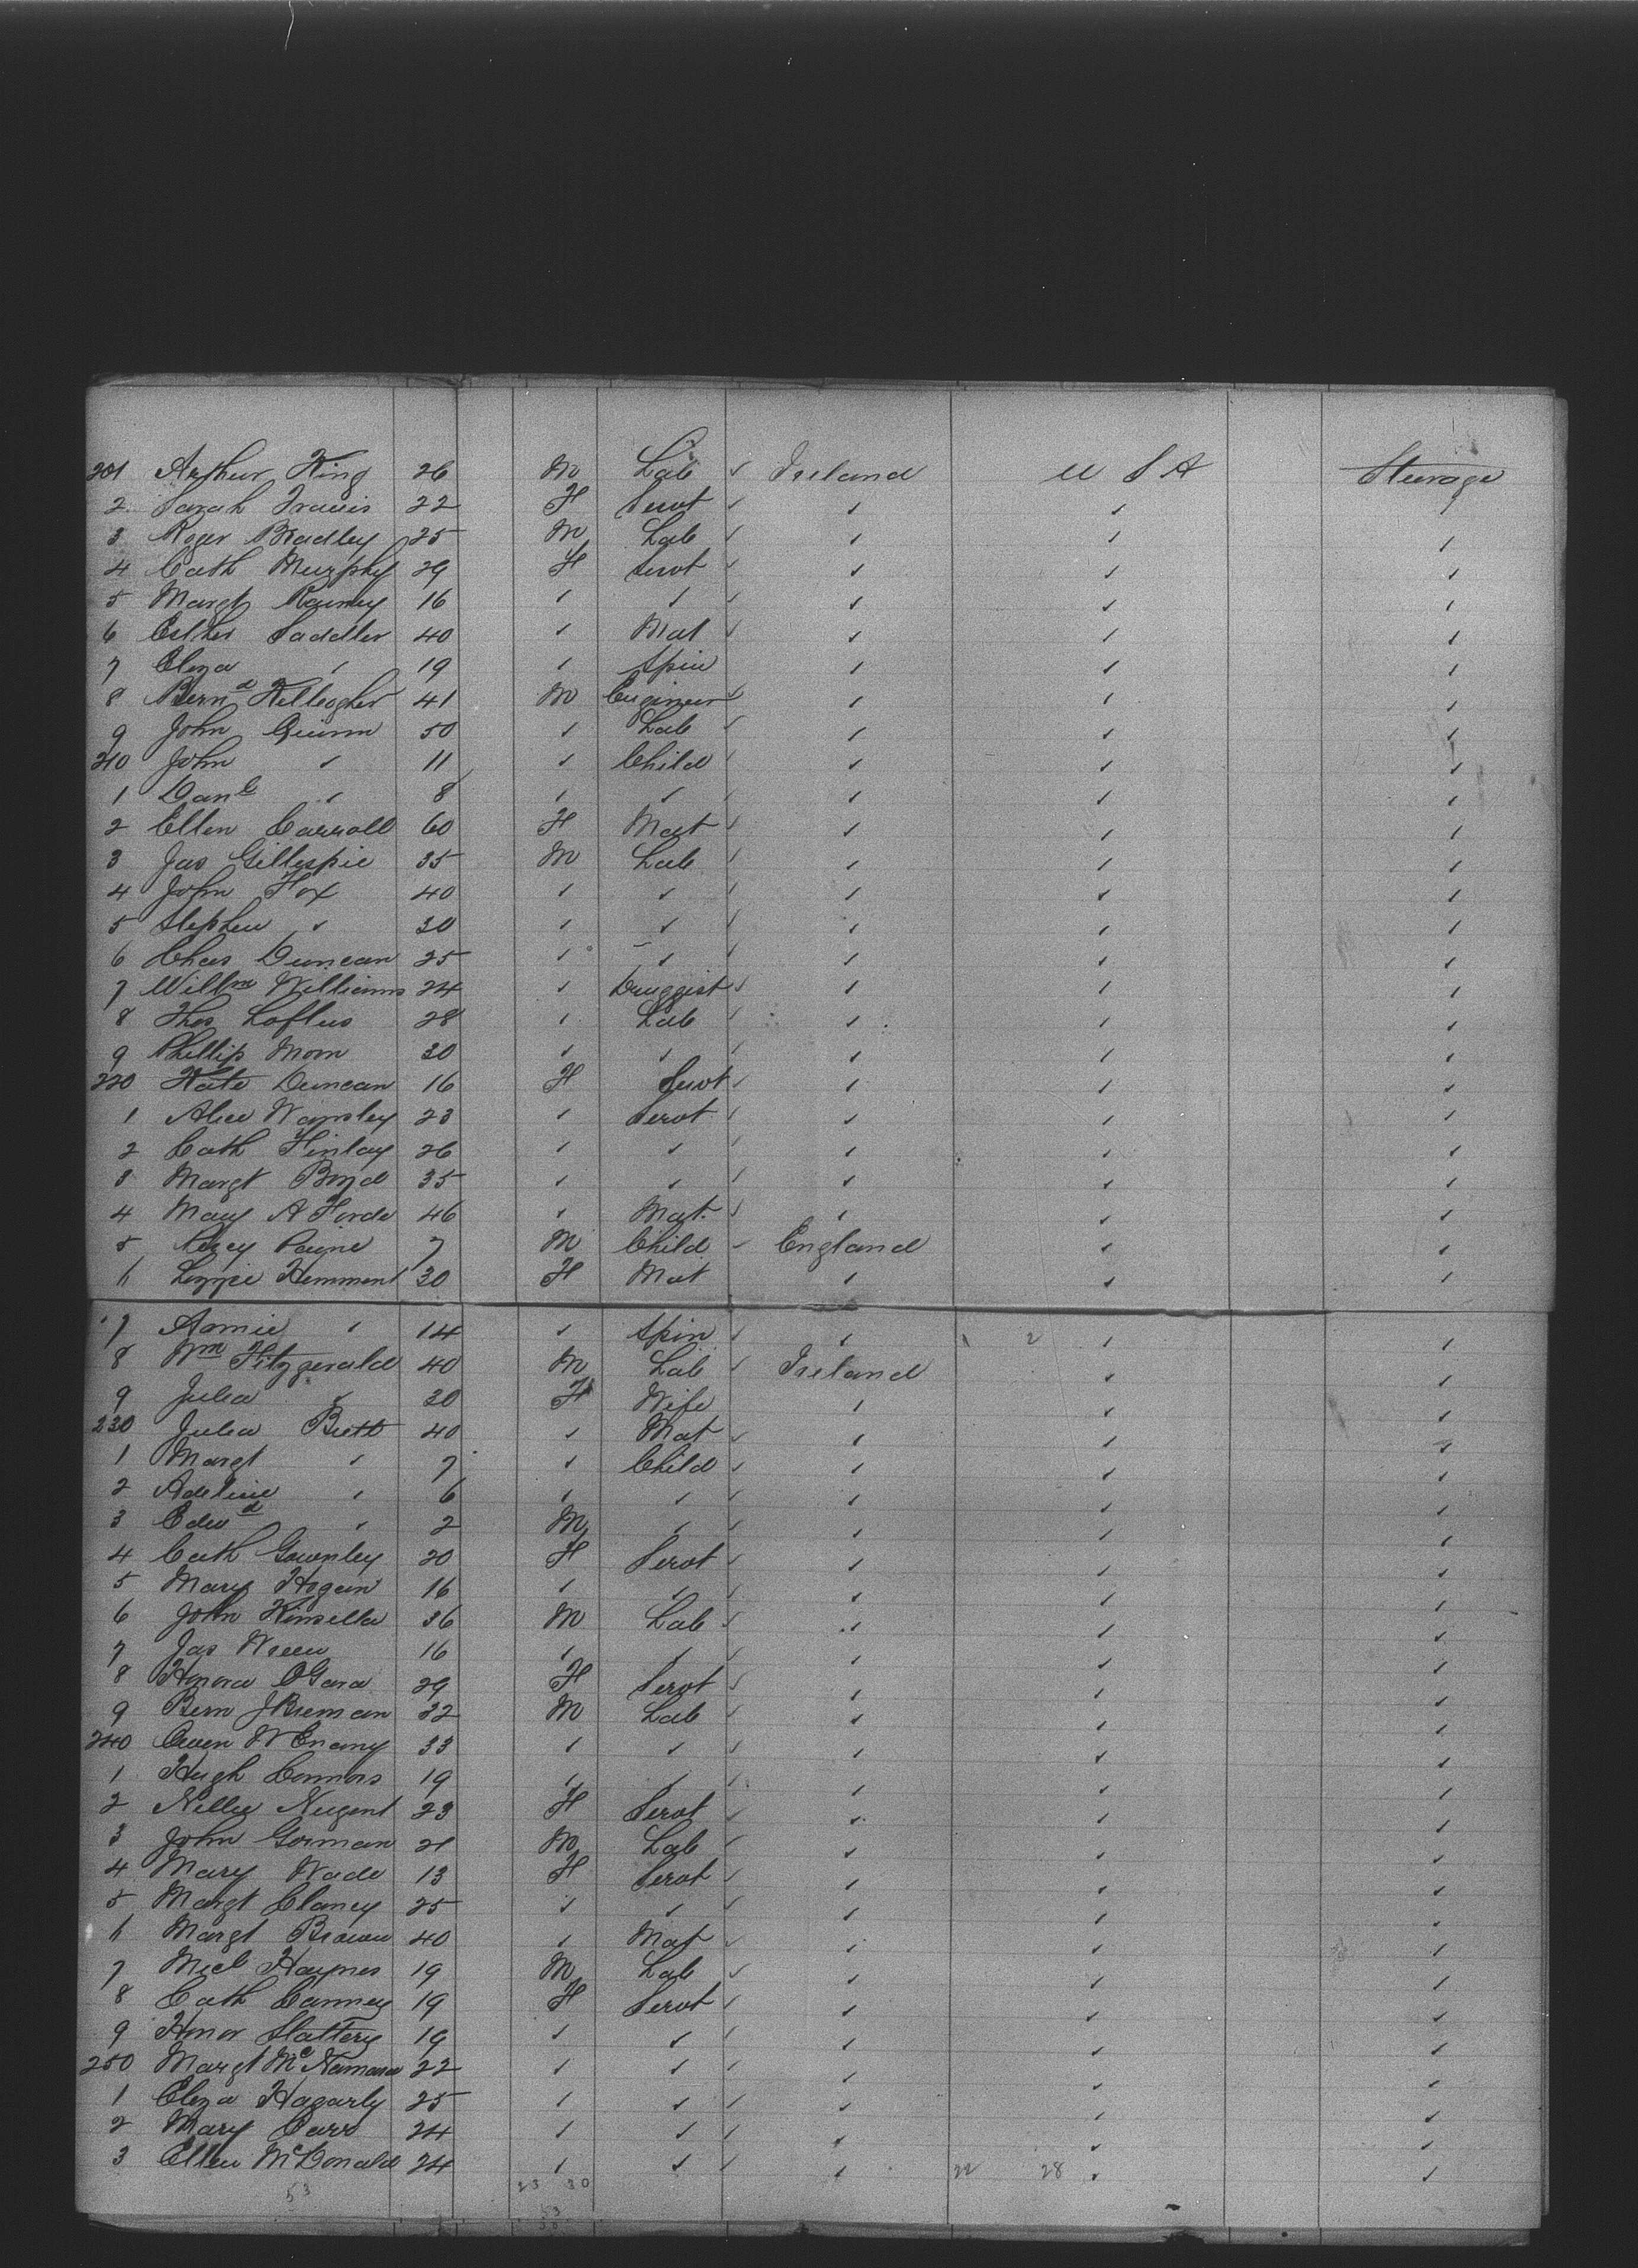 201 Arthur King 26 M Lab ✓ Ireland U S A Steerage
2 Sarah Travis 22 F Servt ✓ ✓ ✓ ✓
3 Roger Bradley 25 M Lab ✓ ✓ ✓ ✓
4 Cath Murphy 29 F Servt ✓ ✓ ✓ ✓
5 Margt 16 ✓ ✓ ✓ ✓ ✓ ✓
6 Esther Saddler 40 ✓ Mat ✓ ✓ ✓ ✓
7 Eliza ✓ 19 ✓ Spin ✓ ✓ ✓
8 Bernd Kelleogher 41 M Engineer ✓ ✓ ✓ ✓
9 John Quinn 50 ✓ Lab ✓ ✓ ✓ ✓
210 John ✓ 11 ✓ Child ✓ ✓ ✓ ✓
1 Danl ✓ 8 ✓ ✓ ✓ ✓ ✓ ✓
2 Ellen Carroll 60 F Mat ✓ ✓ ✓ ✓
3 Jas Gillespie 35 M Lab ✓ ✓ ✓ ✓
4 John Fox 40 ✓ ✓ ✓ ✓ ✓ ✓
5 Stephen ✓ 30 ✓ ✓ ✓ ✓ ✓ ✓
6 Chas Duncan 25 ✓ ✓ ✓ ✓ ✓ ✓
7 Willm Williams 24 ✓ Druggist ✓ ✓ ✓ ✓
8 Thos Loftus 28 ✓ Lab ✓ ✓ ✓ ✓
9 Phillip Morn 30 ✓ ✓ ✓ ✓ ✓ ✓
220 Kate Duncan 16 F Servt ✓ ✓ ✓ ✓
1 Alice Wamsley 23 ✓ Servt ✓ ✓ ✓ ✓
2 Cath Finlay 26 ✓ ✓ ✓ ✓ ✓ ✓
3 Margt Boyd 35 ✓ ✓ ✓ ✓ ✓ ✓
4 Mary A Forde 46 ✓ Mat ✓ ✓ ✓ ✓
5 Percy Payne 7 M Child ✓ England ✓ ✓
6 Lizzie Hemment 30 F Mat ✓ ✓ ✓
7 Annie ✓ 14 ✓ Spin ✓ ✓ 1 2 ✓ ✓
8 Wm Fitzgerald 40 M Lab ✓ Ireland ✓ ✓
9 Julia ✓ 30 F Wife ✓ ✓ ✓
230 Julia Butt 40 ✓ Mat ✓ ✓ ✓ ✓
1 Margt ✓ 7 ✓ Child ✓ ✓ ✓ ✓
2 Adeline ✓ 6 ✓ ✓ ✓ ✓ ✓ ✓
3 Edwd ✓ 2 M ✓ ✓ ✓ ✓ ✓
4 Cath Gownley 20 F Servt ✓ ✓ ✓ ✓
5 Mary Hogan 16 ✓ ✓ ✓ ✓ ✓ ✓
6 John Kinsella 36 M Lab ✓ ✓ ✓ ✓
7 Jas Wreen 16 ✓ ✓ ✓ ✓ ✓ ✓
8 Honora OGara 29 F Servt ✓ ✓ ✓ ✓
9 Bern J Brennan 32 M Lab ✓ ✓ ✓ ✓
240 Owen 33 ✓ ✓ ✓ ✓ ✓ ✓
1 Hugh Connors 19 ✓ ✓ ✓ ✓ ✓ ✓
2 Nellie Nugent 23 F Servt ✓ ✓ ✓ ✓
3 John Gorman 21 M Lab ✓ ✓ ✓ ✓
4 Mary Wade 13 F Servt ✓ ✓ ✓ ✓
5 Margt Clancy 25 ✓ ✓ ✓ ✓ ✓ ✓
6 Margt Brown 40 ✓ Mat ✓ ✓ ✓ ✓
7 Micl Haynes 19 M Lab ✓ ✓ ✓ ✓
8 Cath Canney 19 F Servt ✓ ✓ ✓ ✓
9 Honor Slattery 19 ✓ ✓ ✓ ✓ ✓ ✓
250 Margt McNamara 22 ✓ ✓ ✓ ✓ ✓ ✓
1 Eliza Hagarly 25 ✓ ✓ ✓ ✓ ✓ ✓
2 Mary Carr 24 ✓ ✓ ✓ ✓ ✓ ✓
3 Ellen McDonald 24 ✓ ✓ ✓ ✓ 22 28 ✓ ✓
53 23 30
53